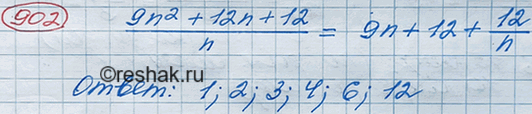 902 (9n² + 12n + 12)/n = 9n + 12 + 12/n
©reshak.ru
Ответ: 1; 2; 3; 4; 6; 12